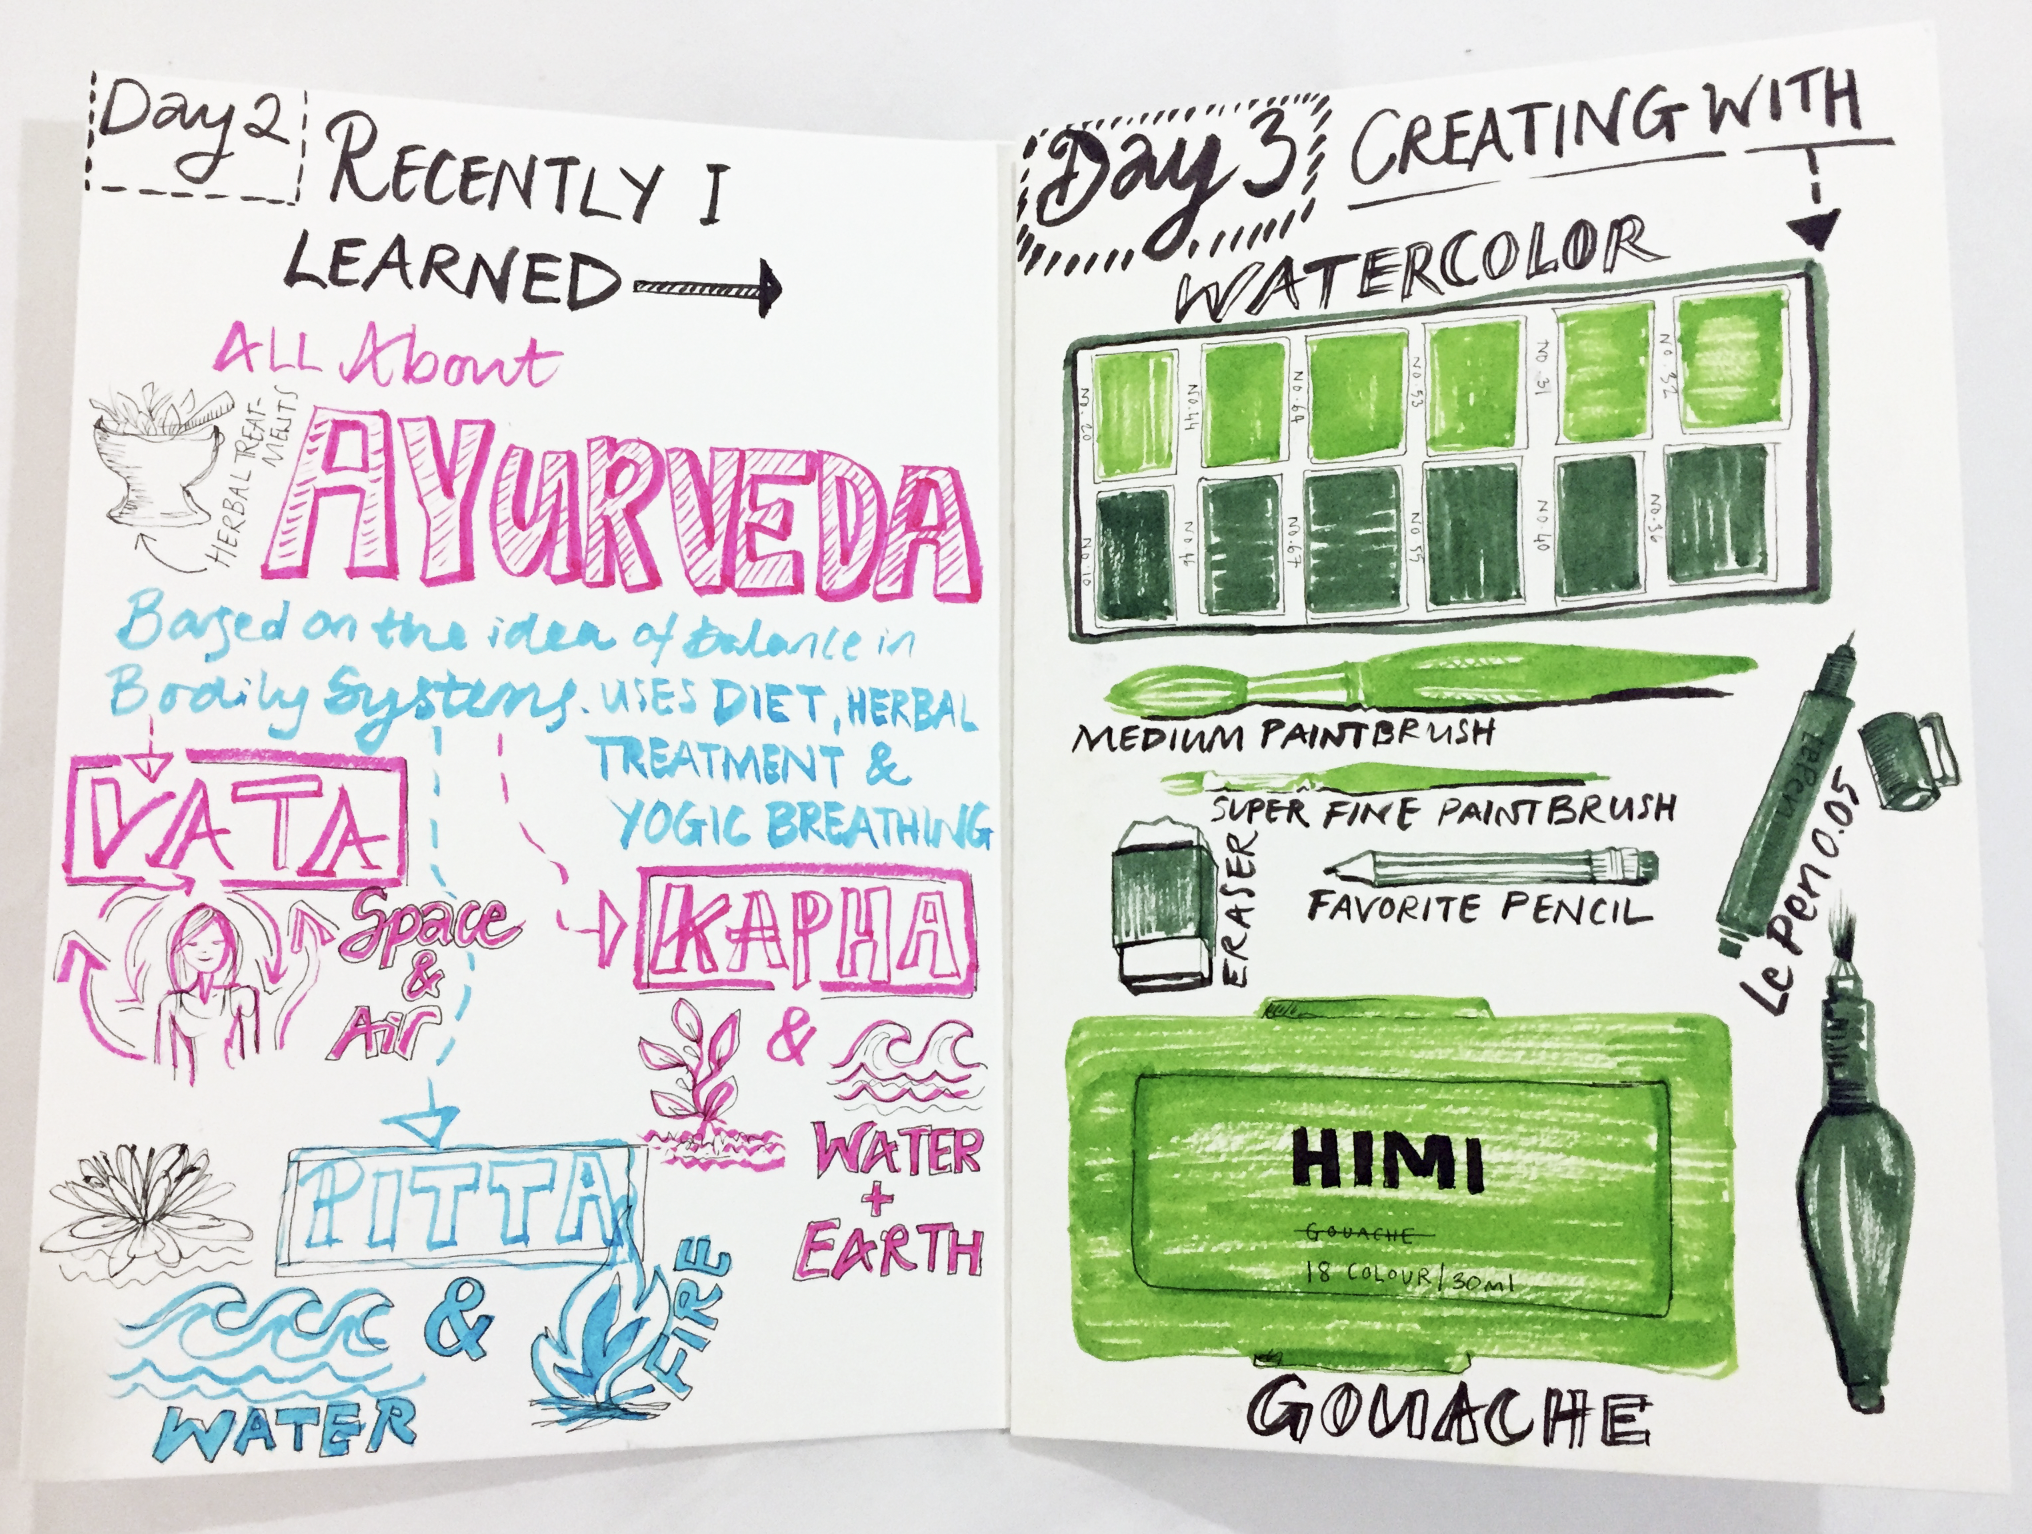 Day 2
RECENTLY I
LEARNED
ALL About
HERBAL TREAT-
MENTS
AYURVEDA
Based on the idea of balance in
Bodily Systems. USES DIET, HERBAL
TREATMENT &
YOGIC BREATHING
VATA
Space
&
Air
KAPHA
&
WATER
+
EARTH
PITTA
&
FIRE
WATER
Day 3
CREATING WITH
WATERCOLOR
NO. 20
NO. 44
NO. 69
NO. 53
NO. 31
NO. 32
NO. 10
NO. 46
NO. 67
NO 55
NO. 40
NO. 36
MEDIUM PAINTBRUSH
SUPER FINE PAINTBRUSH
ERASER
FAVORITE PENCIL
LePen
Le Pen 0.05
HIMI
GOUACHE
18 COLOUR/30ml
GOUACHE